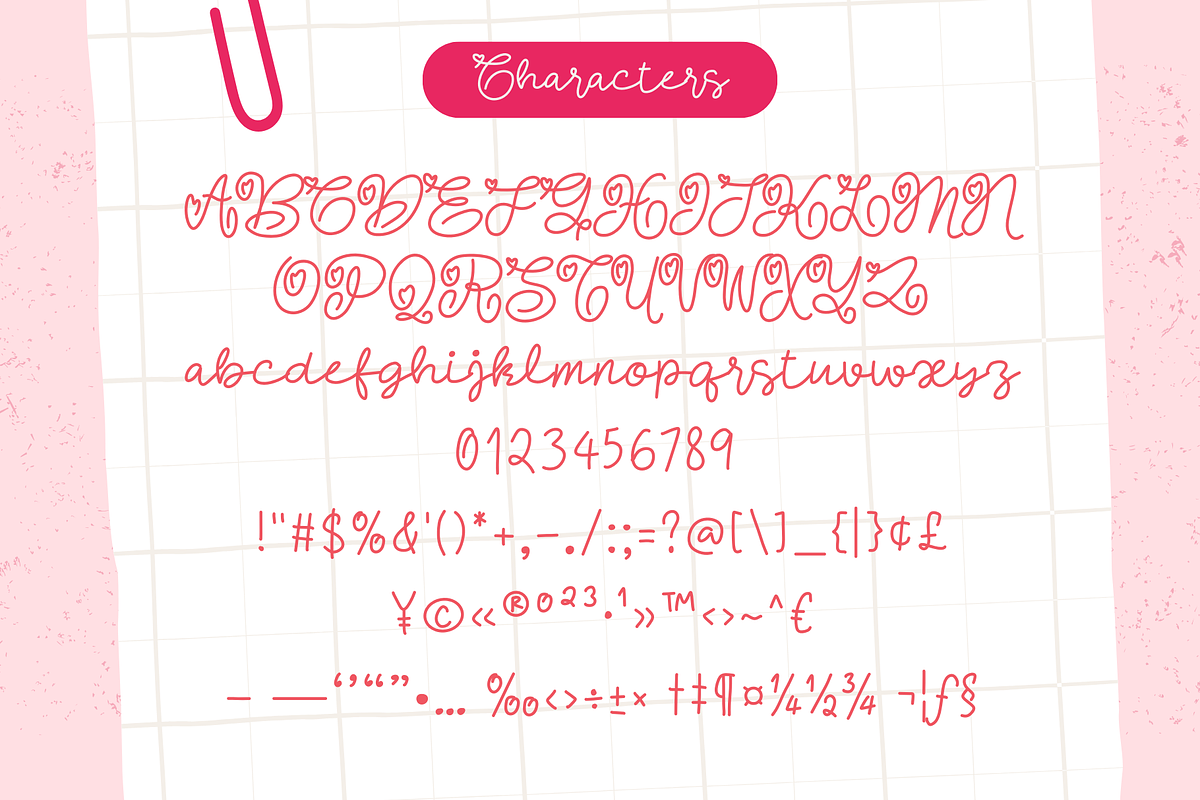 Characters
ABCDEFGHIJKLMN
OPQRSTUVWXYZ
abcdefghijklmnopqrstuvwxyz
0123456789
!"#$%&'()*+,-./:;=?@[\]_{|}¢£
¥©«®°²³·¹»™<>~^€
– —‘’“”•…‰‹›÷±×†‡¶¤¼½¾¬¦ƒ§